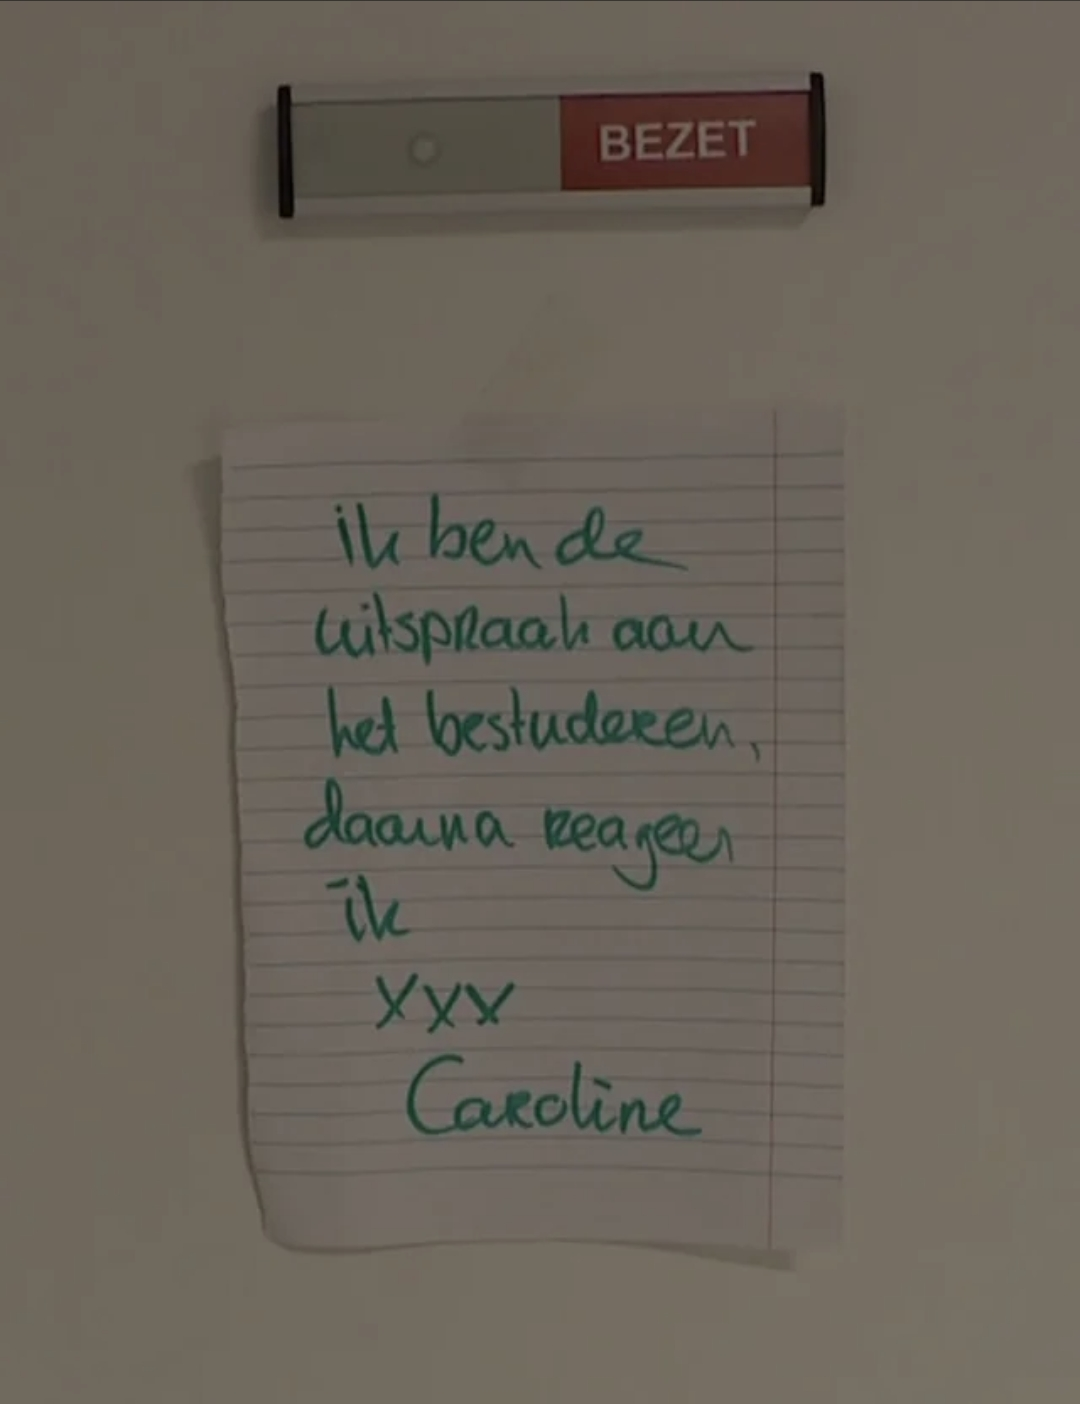 BEZET
ik ben de
uitspraak aan
het bestuderen,
daarna reageer
ik
xxx
Caroline